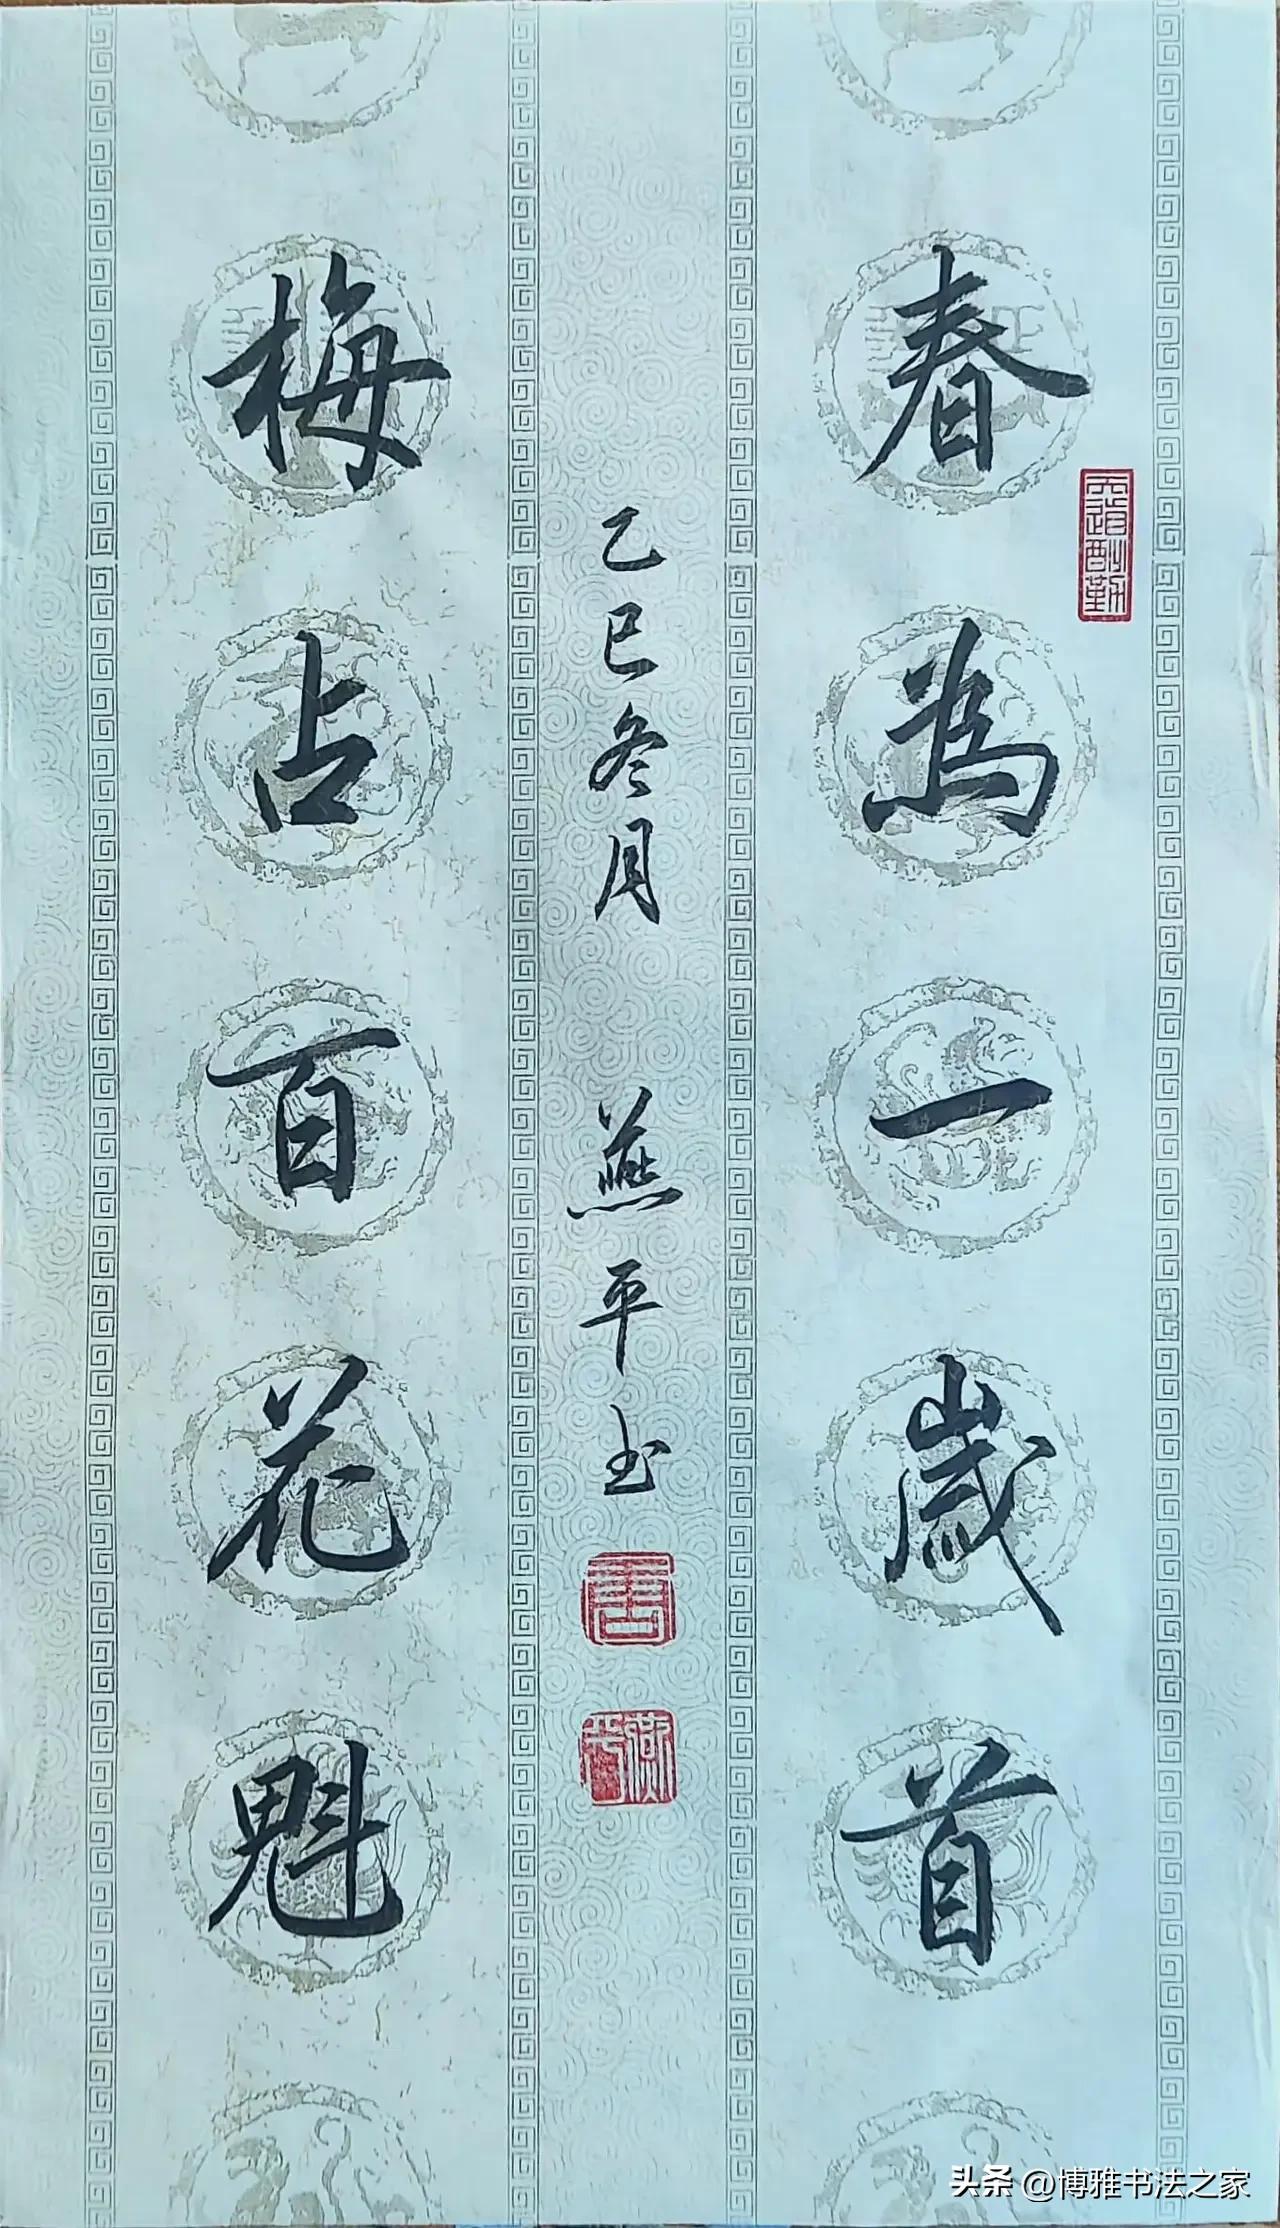 春為一歲首
梅占百花魁
乙巳冬月 燕平书
天道酬勤
头条 @博雅书法之家